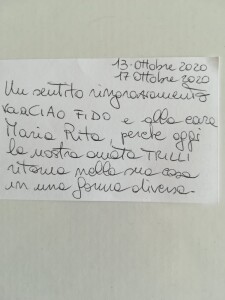 13. Ottobre 2020
17 Ottobre 2020
Un sentito ringraziamento
CIAO FIDO e alla cara
Maria Rita, perchè oggi
la nostra amata TRILLI
ritorna nella sua casa
in una forma diversa.